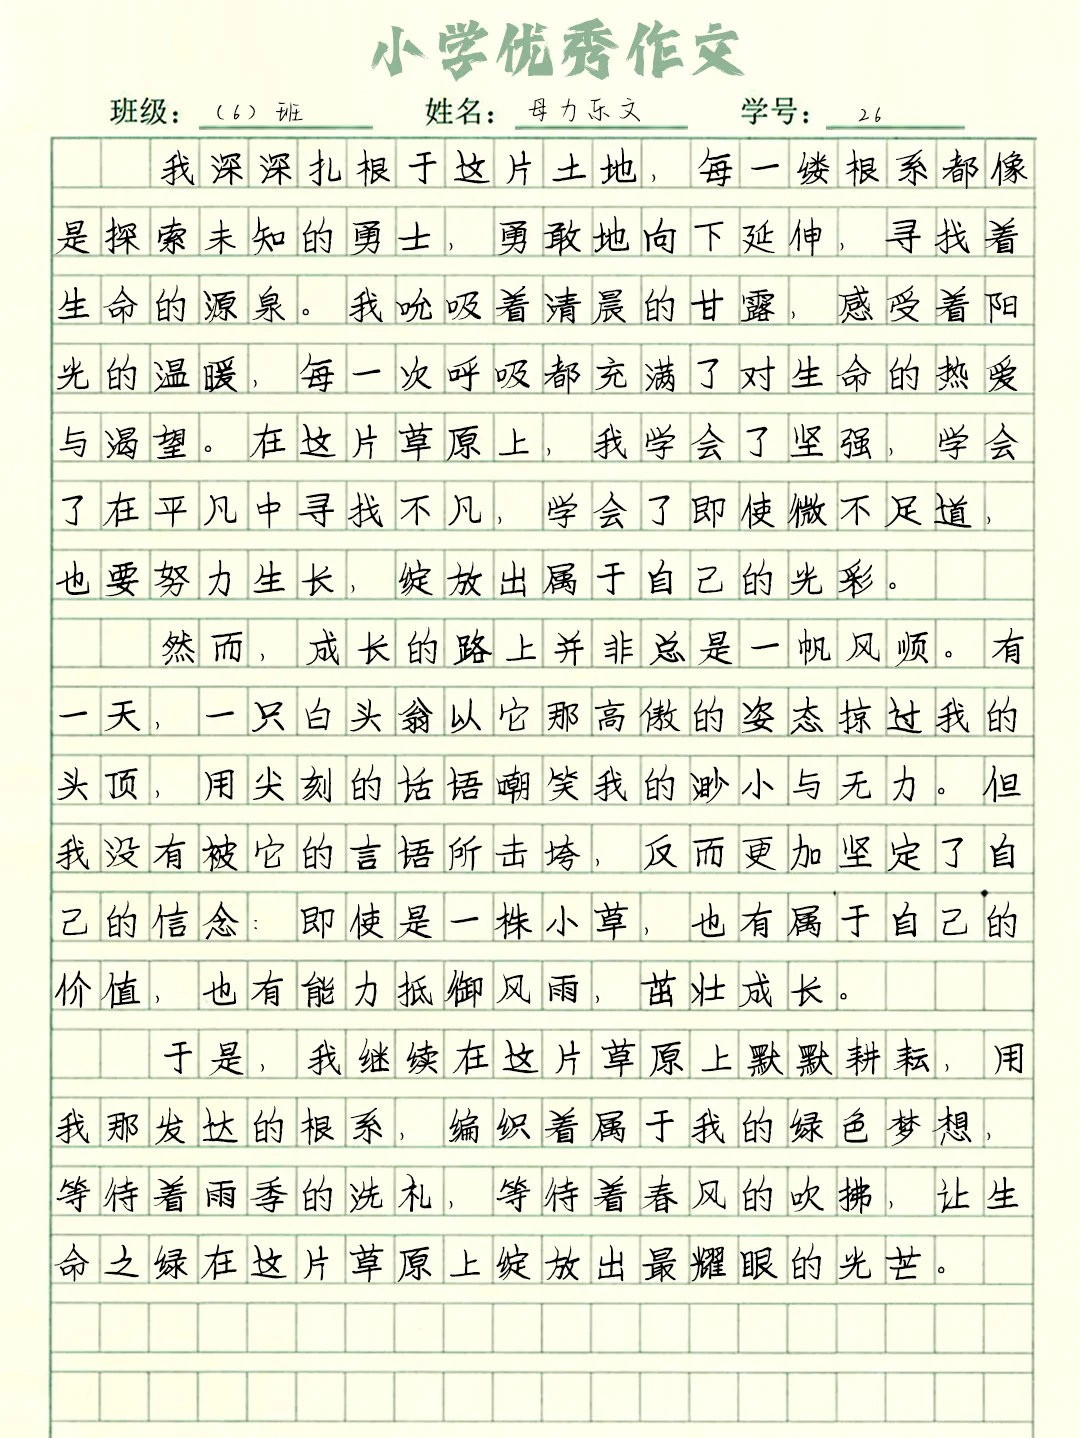 小学优秀作文
班级：（6）班 姓名：母力乐文 学号：26
我深深扎根于这片土地，每一缕根系都像
是探索未知的勇士，勇敢地向下延伸，寻找着
生命的源泉。我吮吸着清晨的甘露，感受着阳
光的温暖，每一次呼吸都充满了对生命的热爱
与渴望。在这片草原上，我学会了坚强，学会
了在平凡中寻找不凡，学会了即使微不足道，
也要努力生长，绽放出属于自己的光彩。
然而，成长的路上并非总是一帆风顺。有
一天，一只白头翁以它那高傲的姿态掠过我的
头顶，用尖刻的话语嘲笑我的渺小与无力。但
我没有被它的言语所击垮，反而更加坚定了自
己的信念：即使是一株小草，也有属于自己的
价值，也有能力抵御风雨，茁壮成长。
于是，我继续在这片草原上默默耕耘，用
我那发达的根系，编织着属于我的绿色梦想，
等待着雨季的洗礼，等待着春风的吹拂，让生
命之绿在这片草原上绽放出最耀眼的光芒。